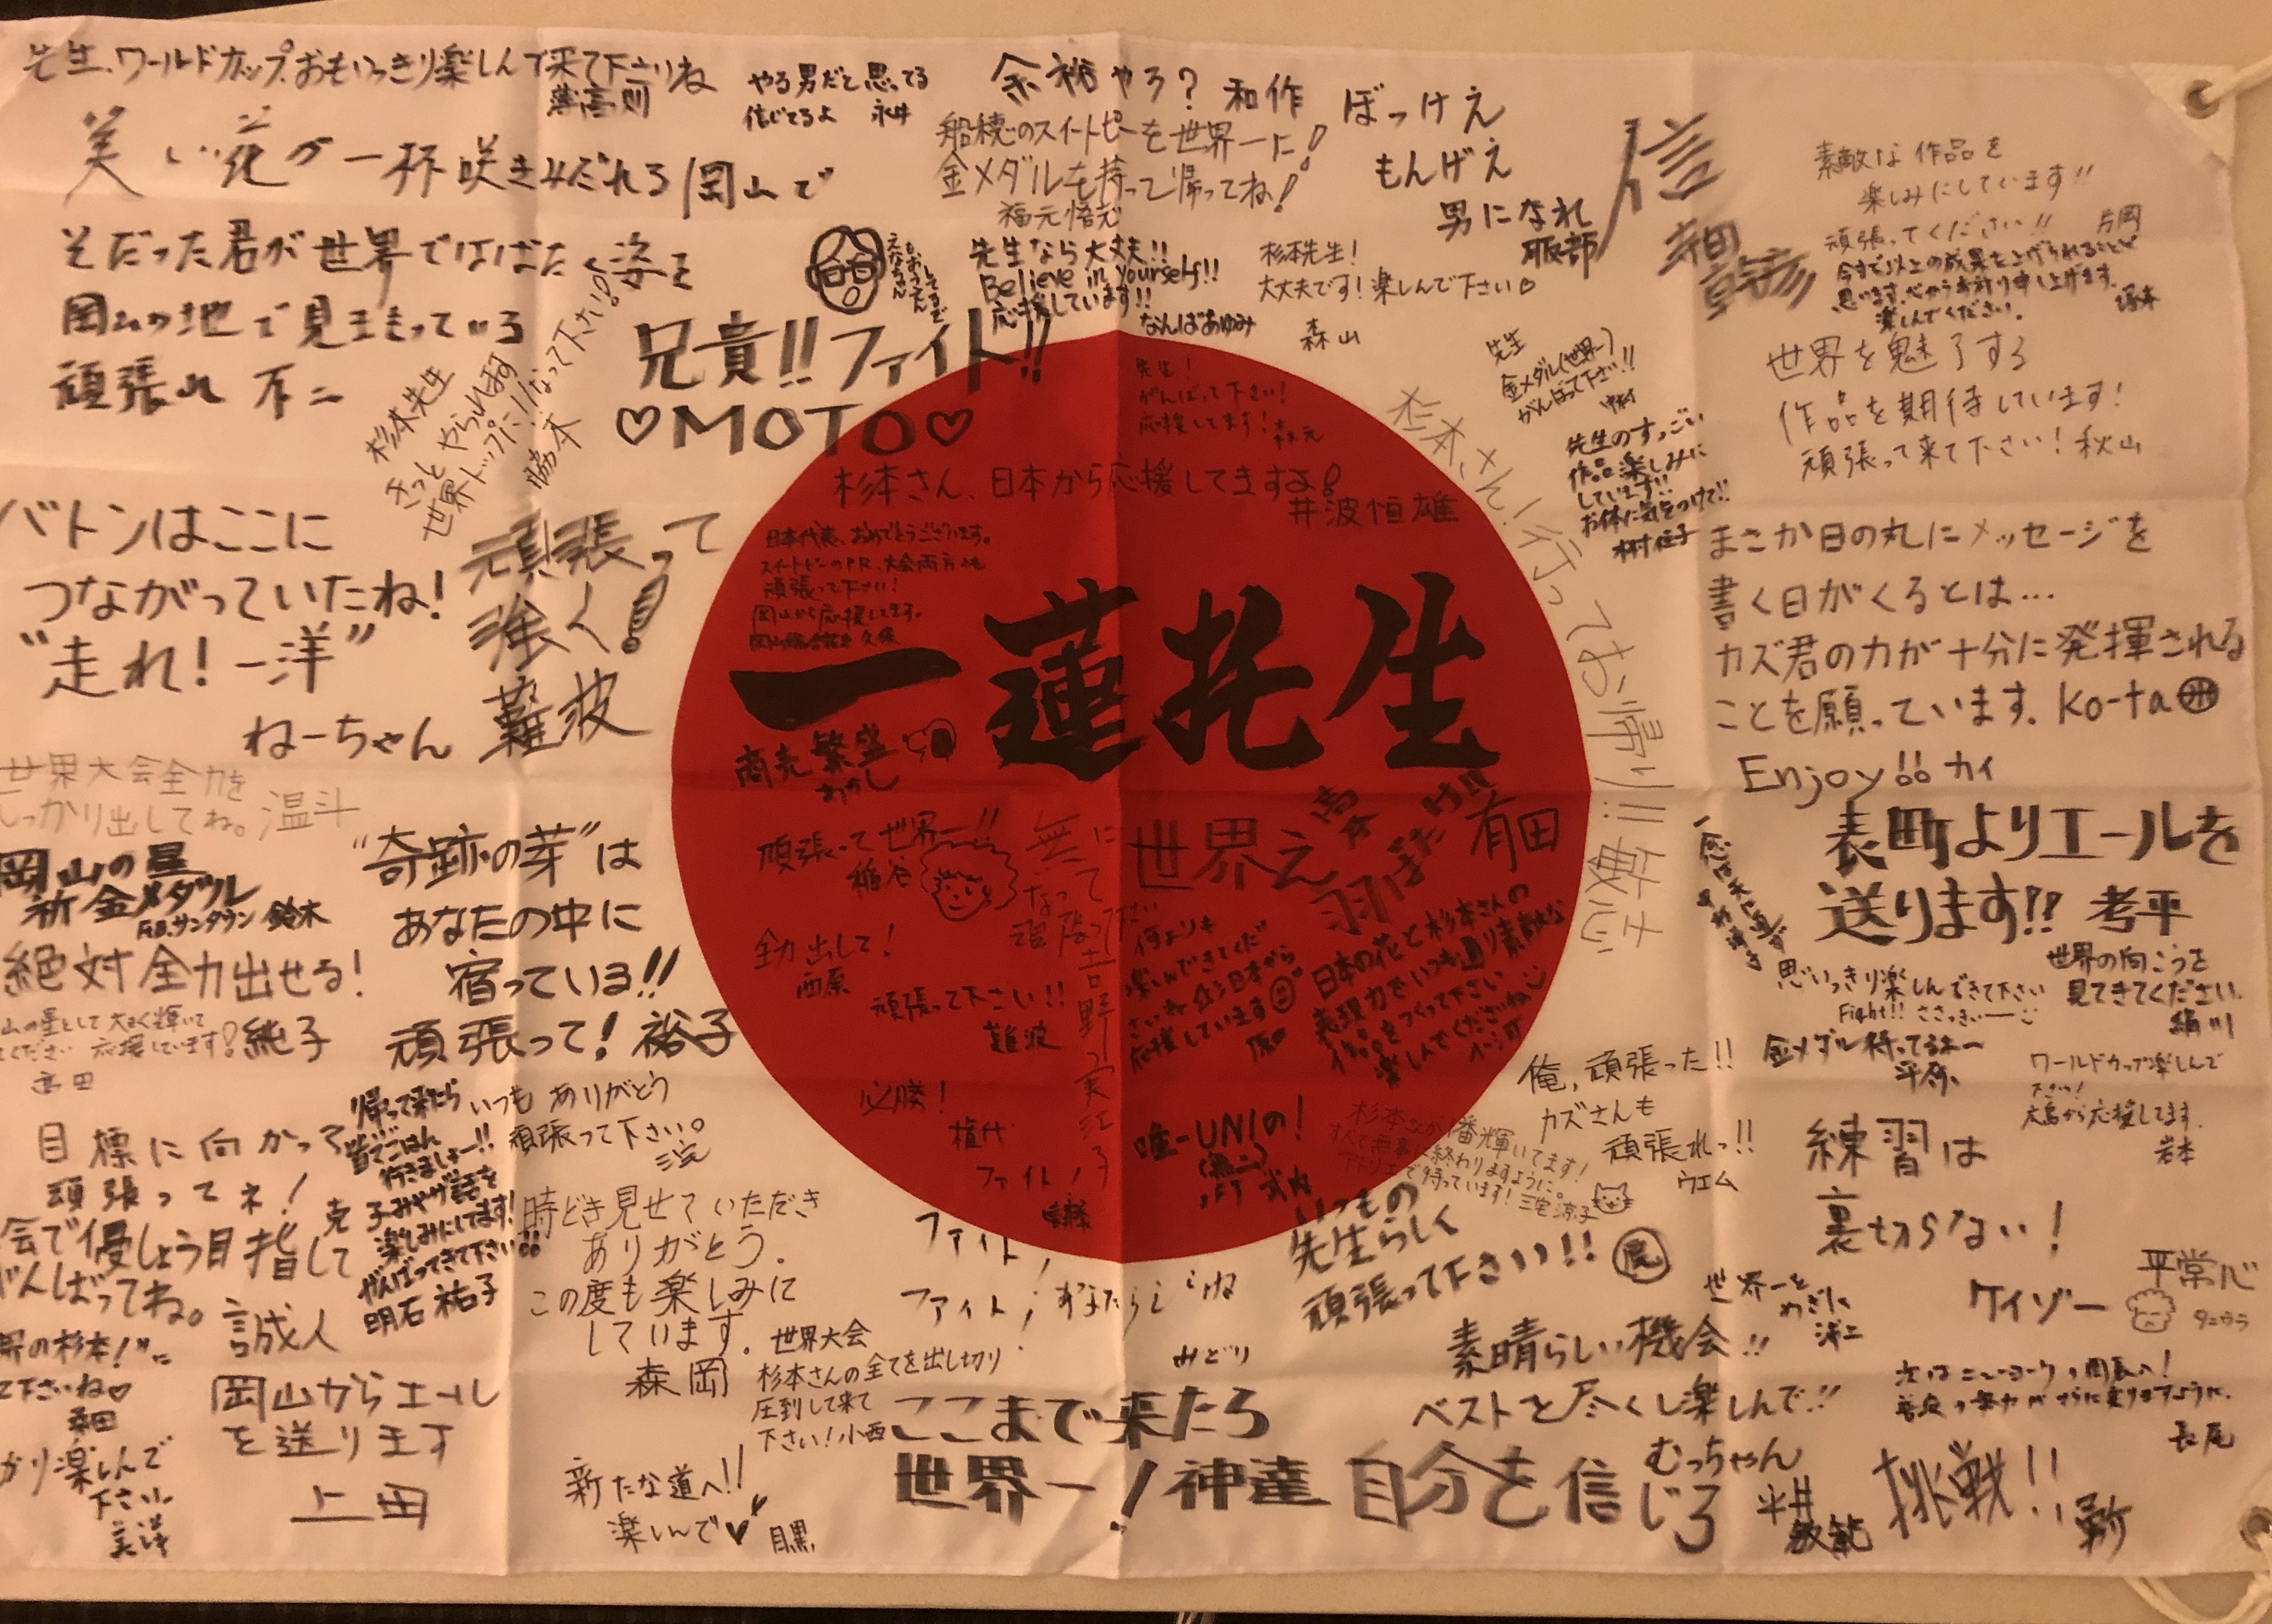 先生、ワールドカップおもいっきり楽しんで来て下さいね
美しい花が一杯咲きみだれる岡山で
そだった君が世界ではばたく姿を
岡山の地で見まもっている
頑張れ 不二
やる男だと思ってる
信じてるよ 永井
余裕やろ? 和作
船穂のスイートピーを世界一に!
金メダルを持って帰ってね!
福元悟志
ぼっけえ
もんげえ
男になれ
服部
信頼
素敵な作品を
楽しみにしています!!
頑張ってください!! 片岡
今まで以上の成果を上げられることと
思います。心からお祈り申し上げます。
楽しんでください。
先生なら大丈夫!!
Believe in yourself!!
応援しています!!
なんばあゆみ
杉本先生!
大丈夫です!楽しんで下さい♡
森山
兄貴!!ファイト!!
♡MOTO♡
杉本先生
きっとやられます
世界トップに!!なって下さい!
脇本
先生!
がんばって下さい!
応援してます!
先生
金メダル(世界一)
がんばって下さい!!
先生のすっごい
作品楽しみに
しています!!
お体に気をつけて!!
世界を魅了する
作品を期待しています!
頑張って来て下さい!秋山
杉本さん、日本から応援してますよ!
井波恒雄
杉本さん!行ってお帰り!!敏志
バトンはここに
つながっていたね!
“走れ!一洋”
ねーちゃん
頑張って
強く!
難波
日本代表、おめでとうございます。
スイートピーのPR、大会両方とも
頑張って下さい!
岡山から応援してます。
一蓮托生
まさか日の丸にメッセージを
書く日がくるとは…
カズ君の力が十分に発揮される
ことを願っています。Ko-ta
Enjoy!! カイ
商売繁盛
あかし
世界大会全力を
しっかり出してね。温斗
岡山の星
祈金メダル
F.B.サンタウン 鈴木
絶対全力出せる!
純子
山の星として大きく輝いて
ください 応援しています!
高田
“奇跡の芽”は
あなたの中に
宿っている!!
頑張って!裕子
頑張って世界一!!
稲谷
無になって頑張って下さい
吉野実江子
世界え
夢
羽ばたけ!!
有田
全力出して!
西原
頑張って下さい!!
難波
何よりも
楽しんできてくだ
さいね☆日本から
応援しています
原
日本の花と杉本さんの
表現力でいつも通り素敵な
作品をつくって下さい
楽しんでくださいね
表町よりエールを
送ります!! 考平
思いっきり楽しんできて下さい
Fight!! ささっきぃー
世界の向こうを
見てきてください。
絹川
金メダル待ってるよ〜
平原
ワールドカップ楽しんで
下さい!
大島から応援してます。
岩本
俺、頑張った!!
カズさんも
頑張れっ!!
ウエム
目標に向かって
頑張ってネ!
克
帰って来たら
皆でごはん
行きましょー!!
みやげ話を
楽しみにしてます!
がんばってきて下さい!!
明石 祐子
いつもありがとう
頑張って下さい。
三宅
必勝!
植代
ファイト!
唯一UNIの!
杉本さんが1番輝いてます!
すべて無事に終わりますように。
アトリエで待っています!三宅涼子
練習は
裏切らない!
ケイゾー
平常心
タニウラ
会で優しょう目指して
がんばってね。
誠人
時どき見せていただき
ありがとう。
この度も楽しみに
しています。
森岡
ファイト!
ファイト!
みどり
いつもの
先生らしく
頑張って下さい!!
世界一を
めざして
洋二
素晴らしい機会!!
ベストを尽くし楽しんで!!
むっちゃん
界の杉本!”に
て下さいね♡
桑田
岡山からエール
を送ります
上田
世界大会
杉本さんの全てを出し切り
圧到して来て
下さい!小西
ここまで来たら
世界一!神達
自分を信じろ
平井
挑戦!!
次はニューヨークの個展へ!
長尾
かり楽しんで
下さい。
美洋
新たな道へ!!
楽しんで♥
目黒